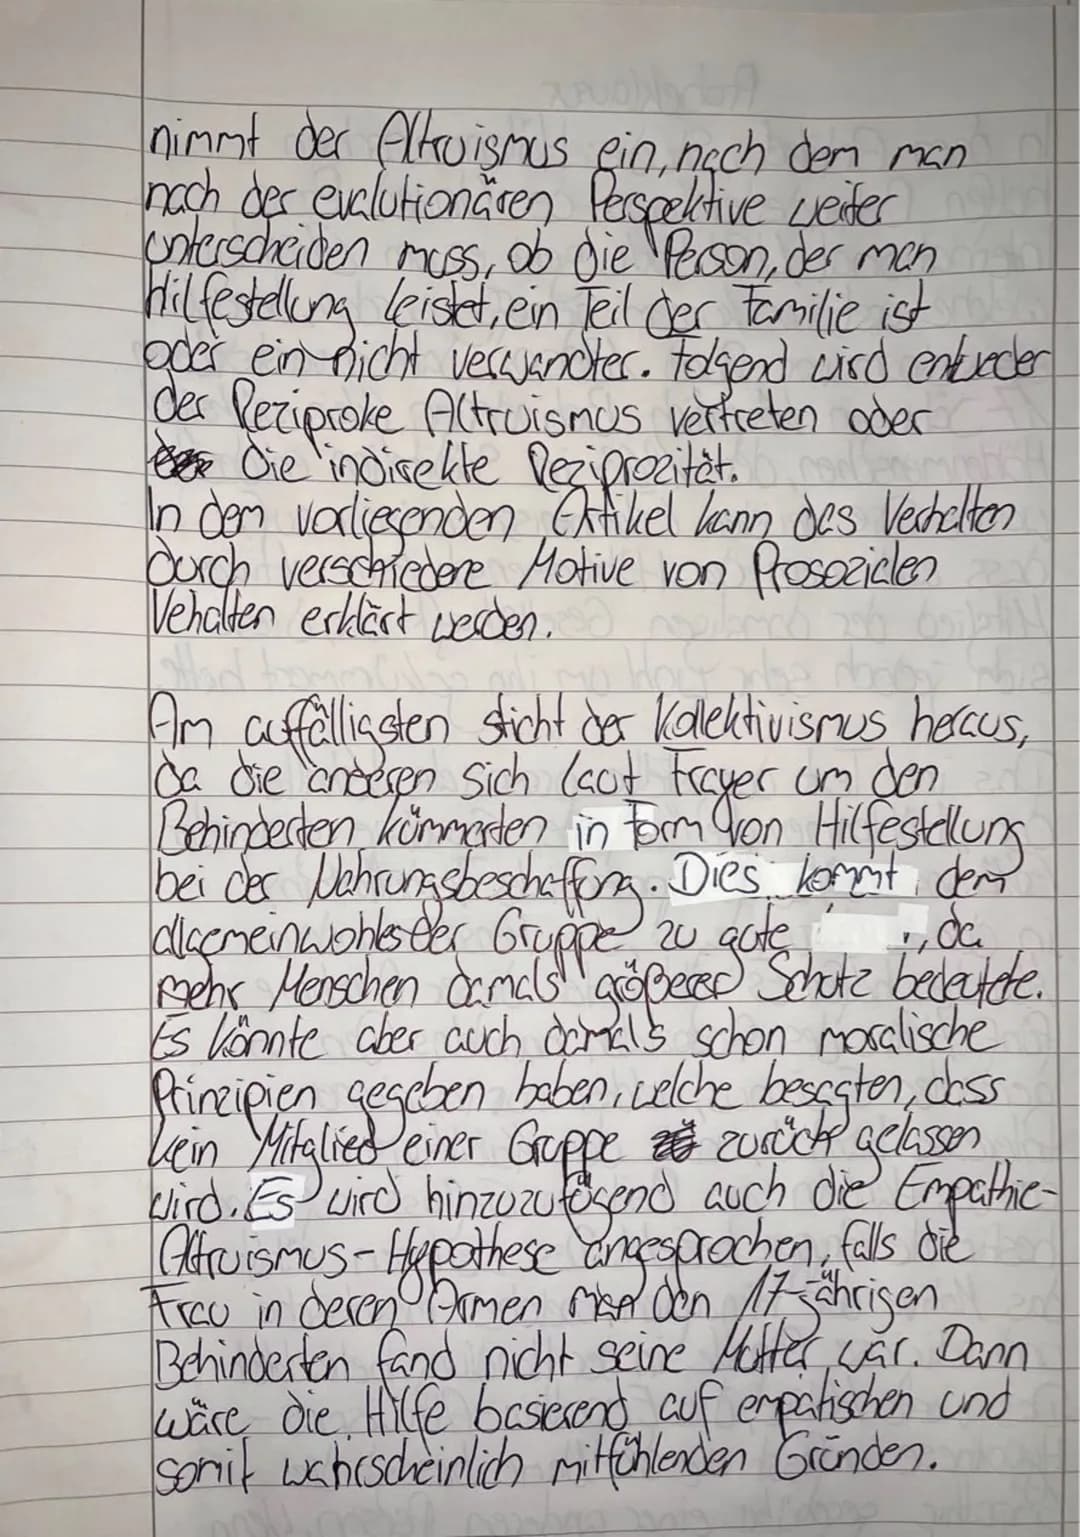 nimmt der Altruismus ein, nach dem man
nach der evalutionären Perspektive weiter
unterscheiden muss, ob die Person, der man
Hilfestellung leistet, ein Teil der Familie ist
oder ein nicht verwandter. Folgend wird entweder
der Reziproke Altruismus vertreten oder
die indirekte Reziprozität.
In dem vorliegenden Artikel kann das Verhalten
durch verschiedene Motive von Prosozialen
Vehalten erklärt werden.
Am auffälligsten sticht der Kollektivismus heraus,
da die anderen sich laut Frayer um den
Behinderten kümmerten in Form von Hilfestellung
bei der Nahrungsbeschaffung. Dies kommt dem
allgemeinwohles der Gruppe zu gute , da
mehr Menschen damals größerer Schutz bedeutete.
Es könnte aber auch damals schon moralische
Prinzipien gegeben haben, welche besagten, dass
kein Mitglied einer Gruppe zurück gelassen
wird. Es wird hinzuzufügend auch die Empathie-
Altruismus-Hypothese angesprochen, falls die
Frau in deren Armen man den 17-jährigen
Behinderten fand nicht seine Mutter war. Dann
wäre die Hilfe basierend auf empatischen und
somit wahrscheinlich mitfühlenden Gründen.